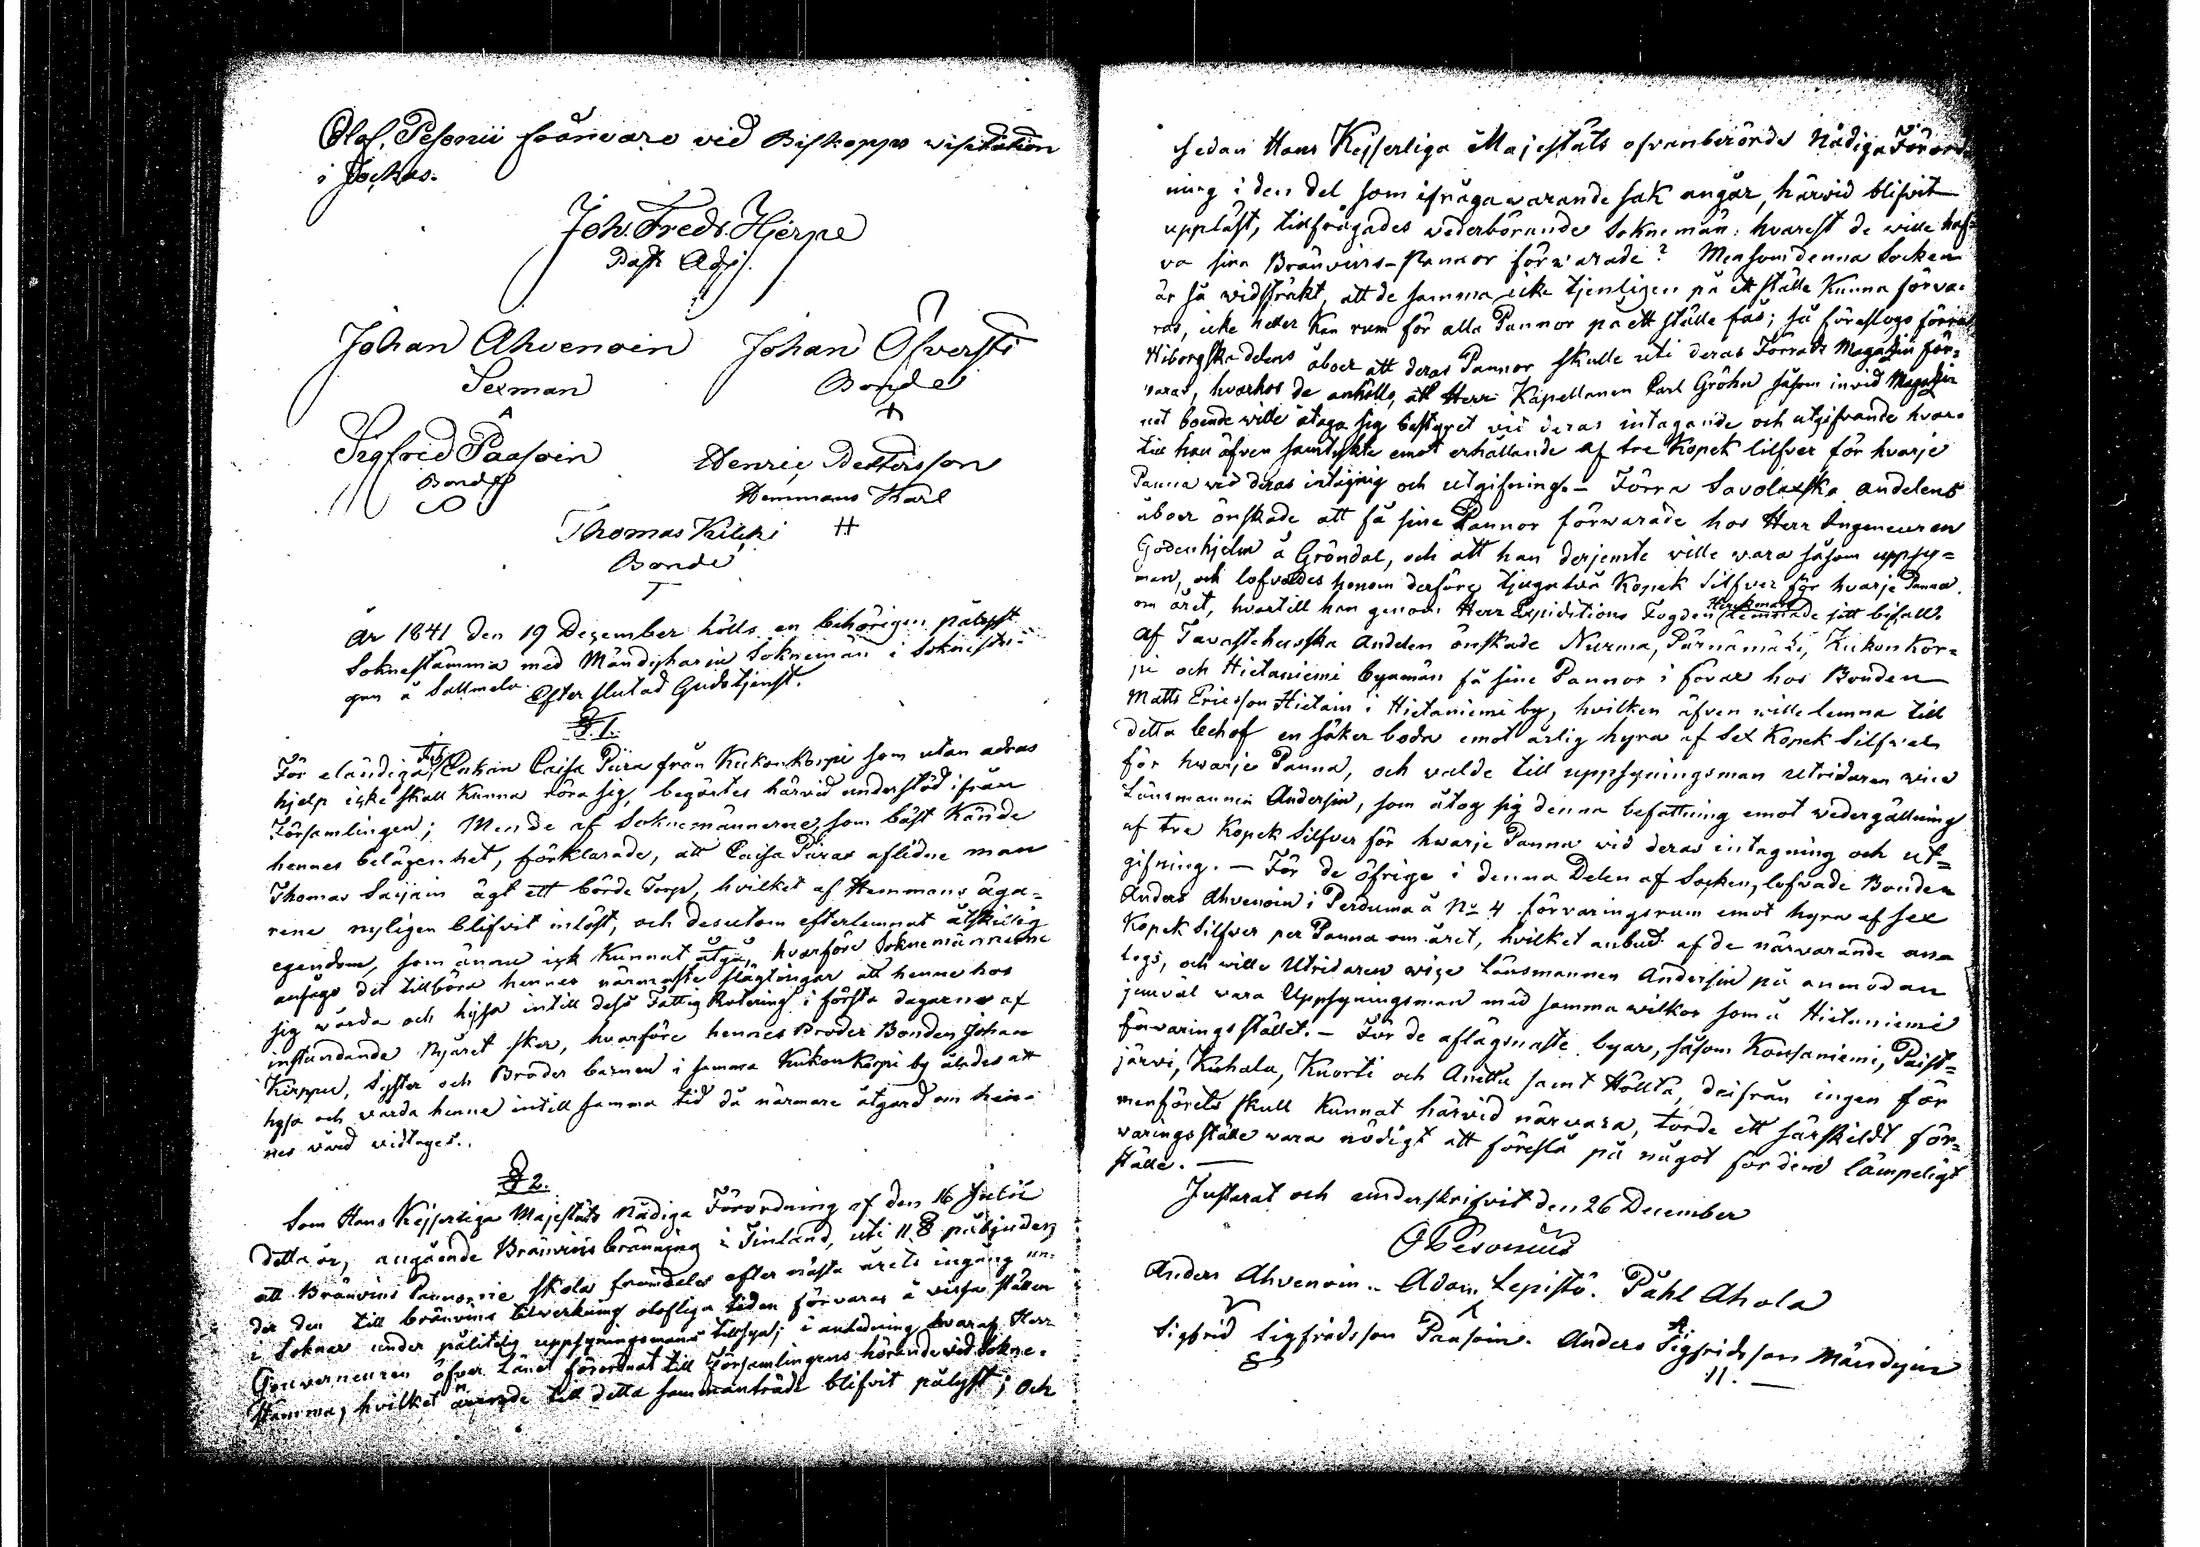 Olof. Pesonii frånvaro vid Biskopps visitation
i Jockas.
Joh. Fredr. Hjerpe
Past. Adj.
Johan Ahvenoin
Sexman
Johan Ölversti
Bonde
Sigfrid Paasoin
Bonde
Henric Pettersson
Hemmans Karl
Thomas Kilki
Bonde
År 1841 den 19 December hölls en behörigen pålyst
Soknestämma med Mändyharju Soknemän i Soknestu-
gan å Sallmela Efter slutad Gudstjenst.
§ 1.
För eländiga Enkan Caisa Piira från Kukonkorpi som utan adras
hjelp icke skall kunna röra sig, begärtes härvid understöd ifrån
Församlingen; Men de af Soknemännerne, som bäst kände
hennes belägenhet, förklarade, att Caisa Piiras aflidne man
Thomas Saijain ägt ett börde Torp, hvilket af Hemmans äga-
rene nyligen blifvit inlöst, och desutom efterlemnat åtskillig
egendom, som ännu ick kunnat åtgå, hvarföre Soknemännerne
ansågo det tillhöra hennes närmaste slägtingar att henne hos
sig vårda och hysa intill dess Fattig Rotering i första dagarne af
instundande Nyåret sker, hvarföre hennes Broder Bonden Johan
Kirppu, Syster och Broder barnen i samma Kukonkorpi by ålades att
hysa och vårda henne intill samma tid då närmare åtgärd om hen-
nes vård vidtages.
§ 2.
Som Hans Kejserliga Majestäts Nådiga Förordning af den 16 Julii
detta år, angående Bränvinsbränning i Finland, uti 11 § påbjuder,
att Bränvins Pannorne skola framdeles efter nästa årets ingång un-
der den till bränvins tilverkning olofliga tiden förvaras å vissa ställen
i Soknar under pålitelig uppsyningsmans tillsyn; i anledning hvaraf Herr
Gouverneuren öfver Länet förordnat till Församlingens hörande vid Sokne-
Stämma, hvilket ärende till detta sammanträde blifvit pålyst; och
sedan Hans Kejserliga Majestäts ofvanberörde Nådiga Förord-
ning i den del som ifrågavarande sak angår, härvid blifvit
uppläst, tillfrågades vederbörande Soknemän: hvarest de wille haf-
va sina Bränvins-Pannor förvarade? Men som denna Socken
är så widsträkt, att de samma icke tjenligen på ett ställe kunna förva-
ras, icke heller kan rum för alla Pannor på ett ställe fås; så föreslogo förra
Wiborgska delens åboer att deras Pannor skulle uti deras Förråds Magazin för-
varas, hvarhos de anhöllo, att Herr Kapellanen Carl Gröhn såsom invid Magazi-
net boende wille åtaga sig bestyret vid deras intagande och utgifvande hvar-
till han äfven samtykte emot erhållande af tre Kopek silfver för hvarje
Panna vid deras intagnig och utgifning. — Förra Savolaxska andelens
åboer önskade att få sine Pannor förwarade hos Herr Ingeneuren
Godenhjelm å Gröndal, och att han derjemte ville wara såsom uppsy-
man, och lofvades honom derföre tjugutvå Kopek Silfver för hvarje Panna
om året, hvartill han genom Herr Expiditions Fogden Heurlin lemnade sitt bifall.
Af Tavastehusska Andelen önskade Nurma, Pärnämäki, Kukonkor-
pi och Hietaniemi byamän få sine Pannor i förvar hos Bonden
Matts Ericsson Hietain i Hietaniemi by, hvilken äfven wille lemna till
detta behof en säker boda emot årlig hyra af Sex Kopek Silfver
för hwarje Panna, och valde till uppsyningsman Utridaren wice
Länsmannen Andersin, som åtog sig denna befattning emot wedergällning
af tre Kopek Silfver för hwarje Panna vid deras intagning och ut-
gifning. — För de öfrige i denna Delen af Socken, lofvade Bonden
Anders Ahvenoin i Perduma å No 4 förvaringsrum emot hyra af sex
Kopek Silfver per Panna om året, hvilket anbud af de närvarande anta-
togs, och wille Utridaren wice Länsmannen Andersin på anmodan
jemväl vara Uppsyningsman med samma wilkor som å Hietaniemi
förvaringsstället. — För de aflägsnaste byar, såsom Kousaniemi, Paist-
järvi, Kuhala, Kuorti och Anettu samt Höltä, derifrån ingen för
menförets skull kunnat härvid närvara, torde ett särskildt för-
varingsställe vara nödigt att föreslå på något för dem lämpeligt
ställe. —
Justerat och underskrifvit den 26 December
O Pesonius
Anders Ahvenoin. Adam Lepistö. Påhl Ahola
Sigfrid Sigfridsson Paasoin. Anders Sigfridsson Mändyin